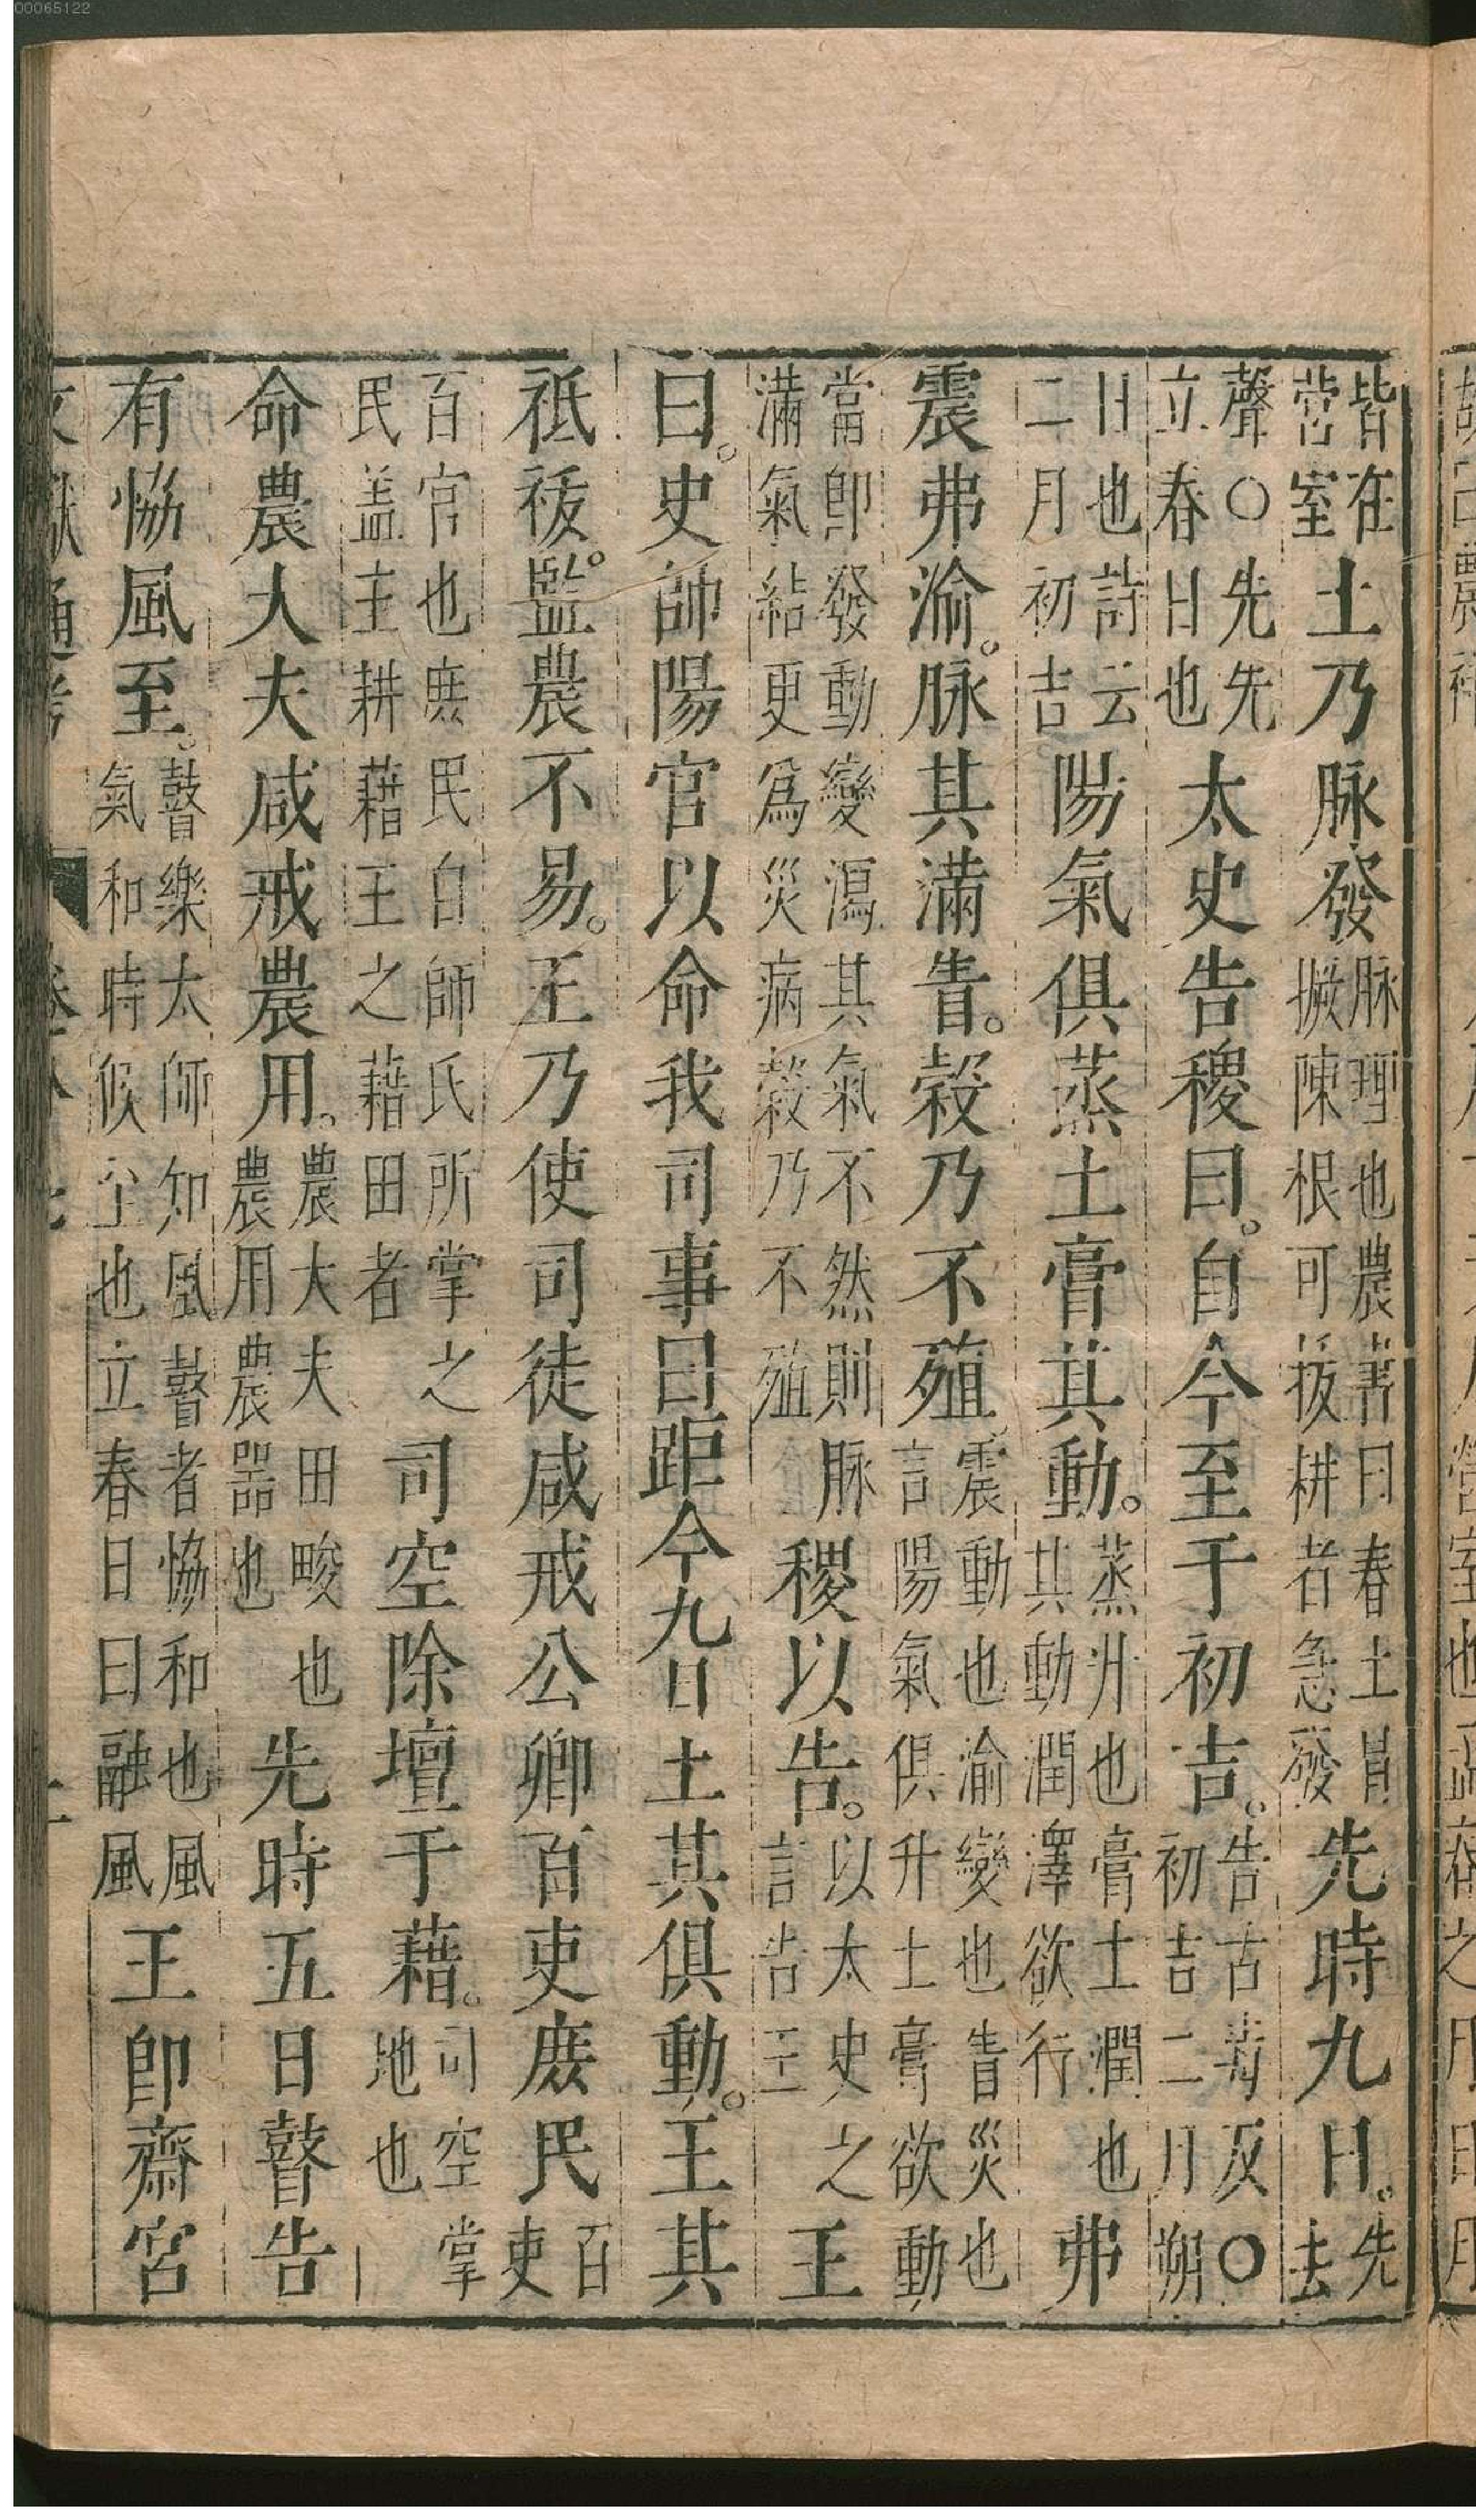 00065122
皆在營室土乃脉發脉理也農書曰春土冒撅陳根可拔耕者急發先時九日。先去
聲○先先立春日也太史告稷曰。自今至于初吉。告古毒反○初吉二月朔
日也詩云二月初吉陽氣俱蒸土膏其動。蒸升也膏土潤也其動潤澤欲行弗
震弗渝。脉其滿眚。穀乃不殖。震動也渝變也眚災也言陽氣俱升土膏欲動
當即發動變瀉其氣不然則脉滿氣結更為災病穀乃不殖稷以告。以太史之言告王王
曰。史帥陽官以命我司事曰距今九日土其俱動。王其
祗祓。監農不易。王乃使司徒咸戒公卿百吏庶民百吏
百官也庶民白師氏所掌之民盖主耕藉王之藉田者司空除壇于藉。司空掌地也
命農大夫咸戒農用。農大夫田畯也農用農器也先時五日瞽告
有協風至。瞽樂太師知風瞽者協和也風氣和時候至也立春日曰融風王即齋宮
文獻通考